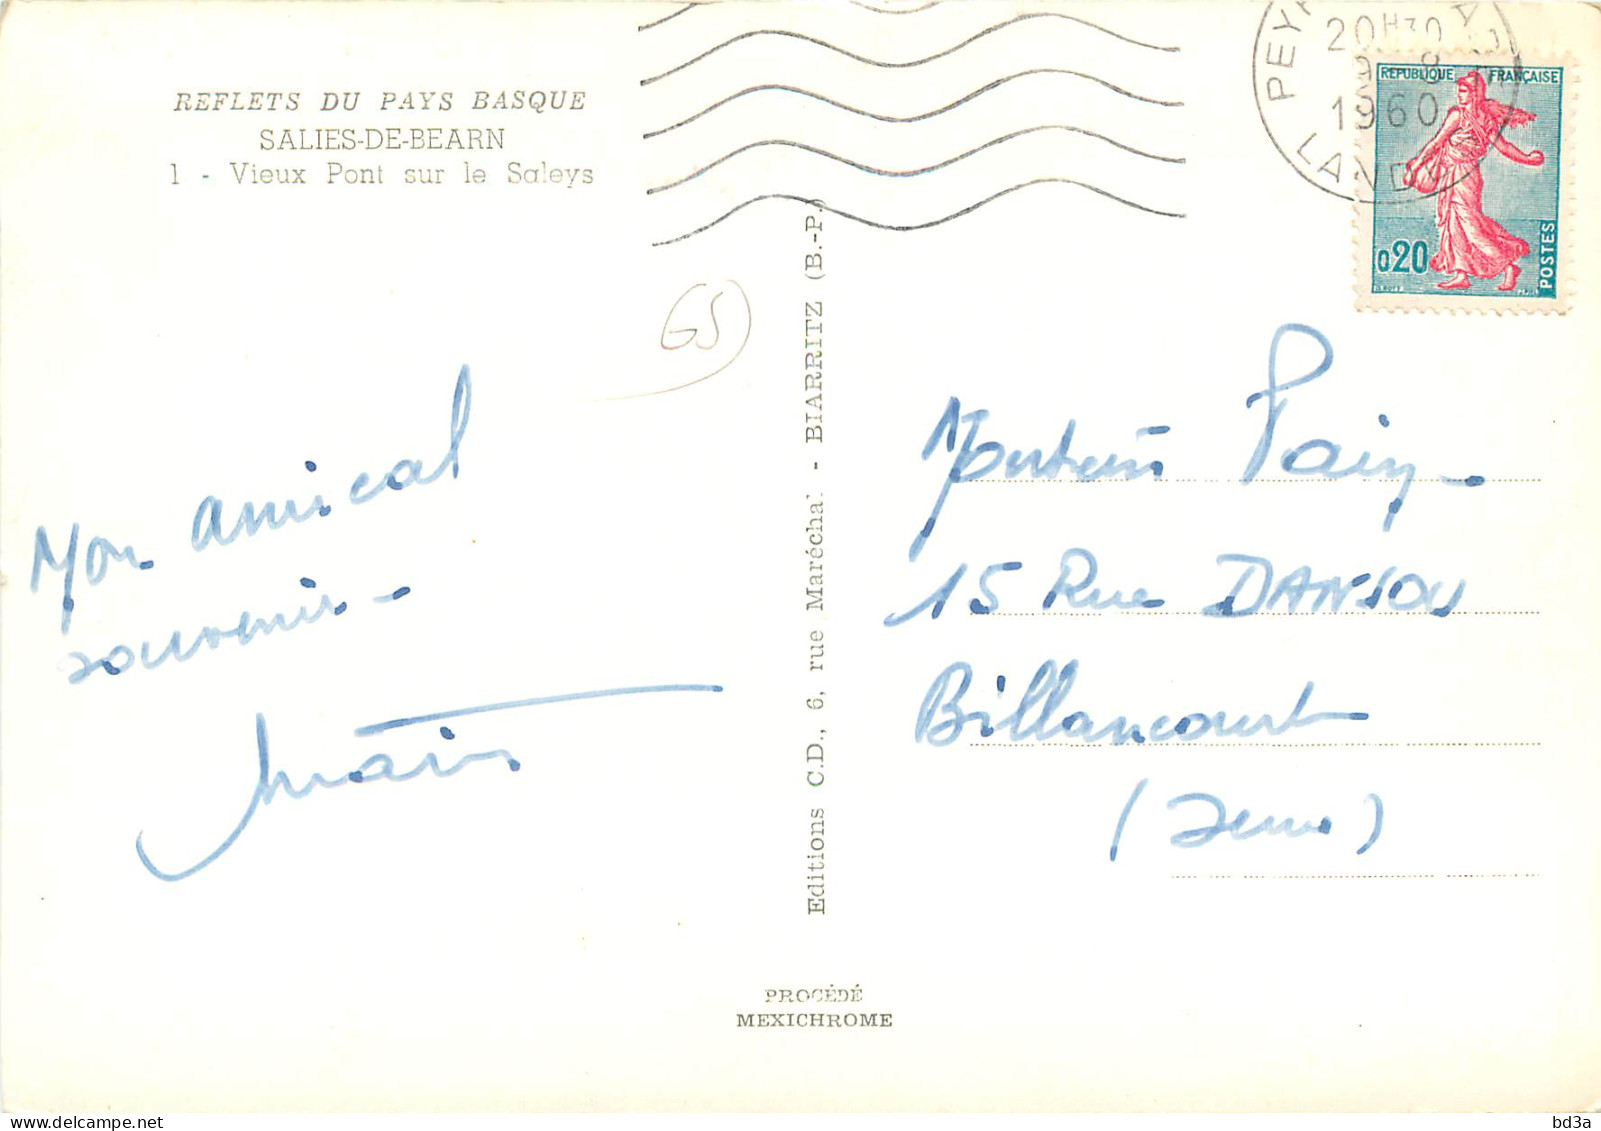 REFLETS DU PAYS BASQUE
SALIES-DE-BEARN
1 - Vieux Pont sur le Saleys
GS
Mon amical
souvenir -
Editions C.D., 6, rue Maréchal - BIARRITZ (B.-P.)
PROCÉDÉ
MEXICHROME
20H30
9 - 8
1960
LANDES
REPUBLIQUE FRANÇAISE
0,20
POSTES
Monsieur
15 Rue DANJOU
Billancourt
(Seine)
delcampe.net
bd3a